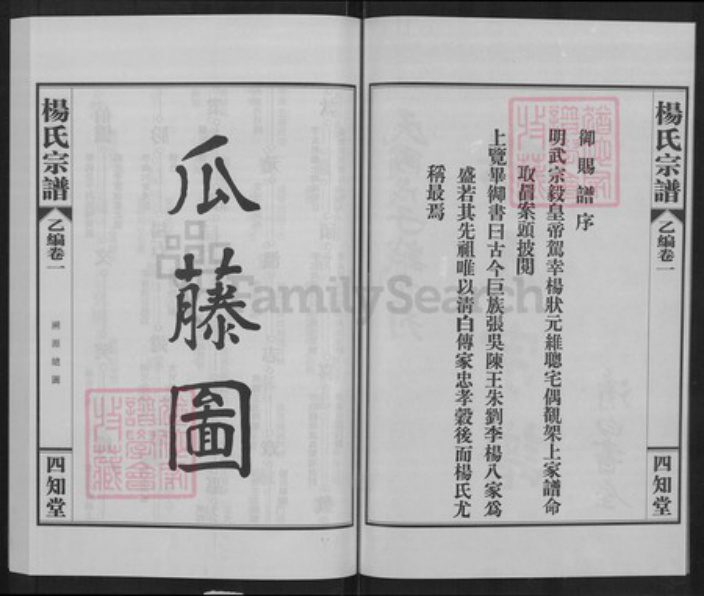 楊氏宗譜
乙編卷一
四知堂
御賜譜序
明武宗毅皇帝駕幸楊狀元維聰宅偶覩架上家譜命
取置案頭披閱
上覽畢御書曰古今巨族張吳陳王朱劉李楊八家爲
盛若其先祖唯以清白傳家忠孝穀後而楊氏尤
稱最焉
瓜藤圖
楊氏宗譜
乙編卷一
溯源總圖
四知堂
FamilySearch